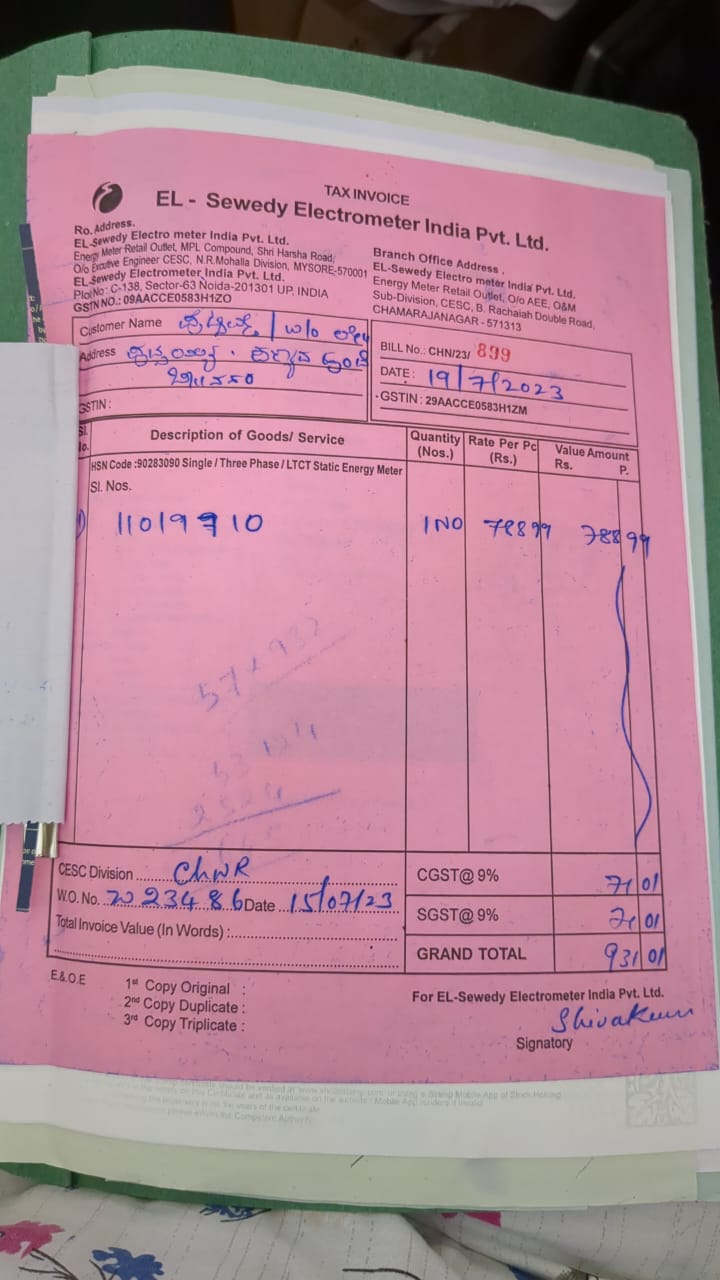 TAX INVOICE
EL - Sewedy Electrometer India Pvt. Ltd.
Ro. Address.
EL-Sewedy Electro meter India Pvt. Ltd.
Energy Meter Retail Outlet, MPL Compound, Shri Harsha Road,
O/o Exucutive Engineer CESC, N.R.Mohalla Division, MYSORE-570001
EL-Sewedy Electrometer India Pvt. Ltd.
Plot No : C-138, Sector-63 Noida-201301 UP, INDIA
GSTN NO.: 09AACCE0583H1ZO
Branch Office Address .
EL-Sewedy Electro meter India Pvt. Ltd.
Energy Meter Retail Outlet, O/o AEE, O&M
Sub-Division, CESC, B. Rachaiah Double Road,
CHAMARAJANAGAR - 571313
Customer Name W/o
Address
GSTIN :
BILL No.: CHN/23/ 899
DATE : 19/7/2023
GSTIN : 29AACCE0583H1ZM
Sl. No. Description of Goods/ Service Quantity (Nos.) Rate Per Pc (Rs.) Value Amount Rs. P.
HSN Code :90283090 Single / Three Phase / LTCT Static Energy Meter
Sl. Nos.
1) 11019910 1NO 788 99 788 99
CESC Division ChNR
W.O. No. 2023486 Date 15/07/23
Total Invoice Value (In Words) :
CGST@ 9% 71 01
SGST@ 9% 71 01
GRAND TOTAL 931 01
E.&.O.E
1st Copy Original :
2nd Copy Duplicate :
3rd Copy Triplicate :
For EL-Sewedy Electrometer India Pvt. Ltd.
Signatory